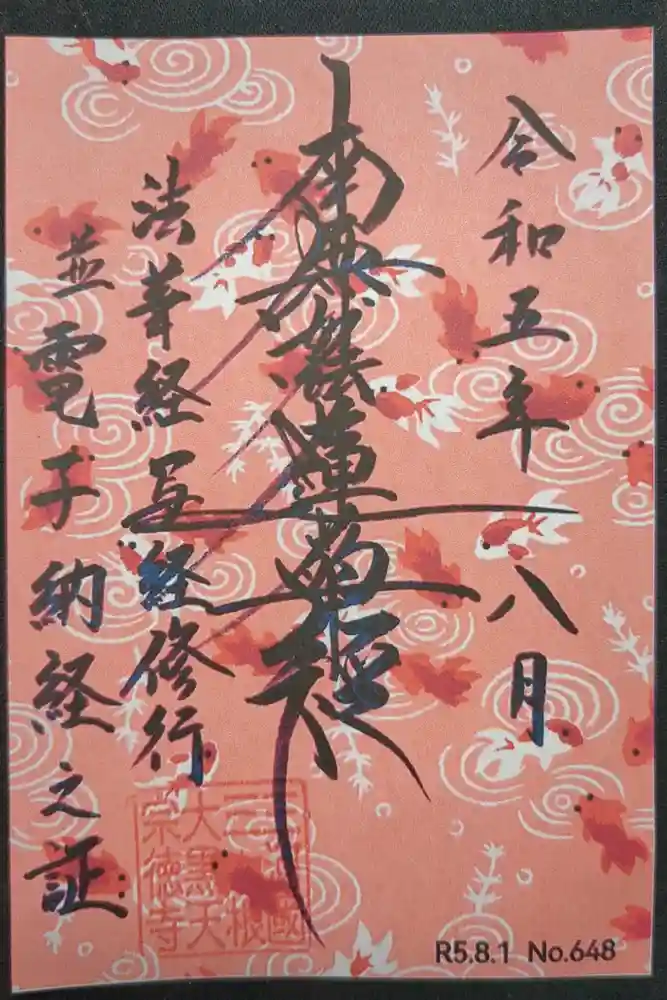 令和五年 八月
南無妙法蓮華経
法華経写経修行
並電子納経之証
大黒天
宗徳寺
R5.8.1 No.648